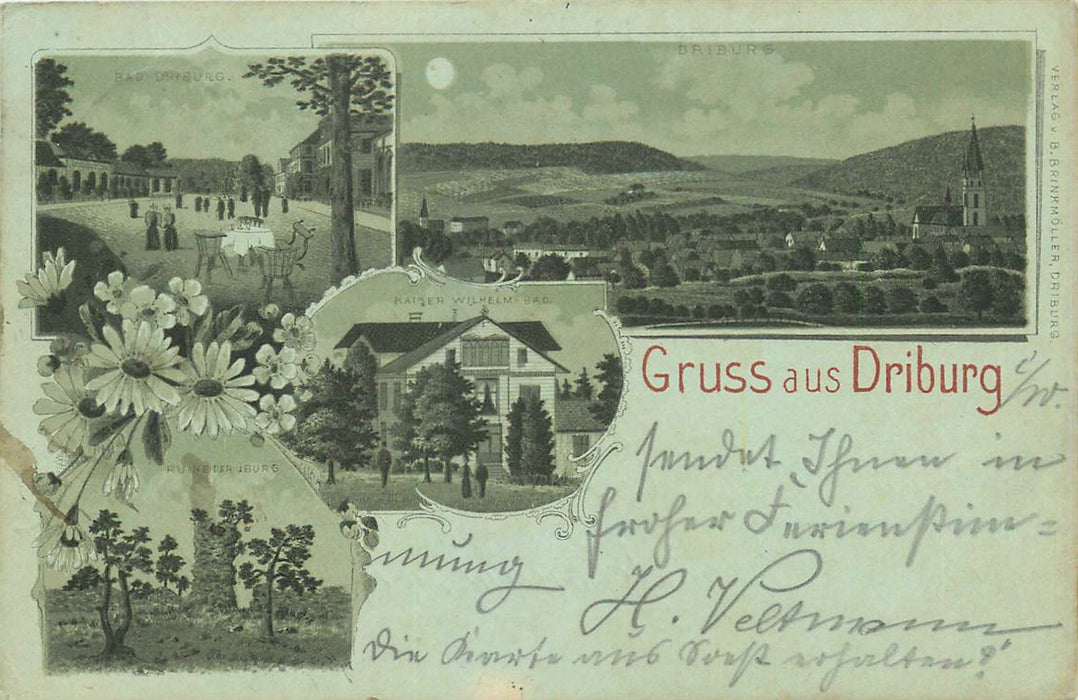 BAD DRIBURG.
DRIBURG
KAISER WILHELM-BAD.
RUINE DER IBURG
VERLAG v. B. BRINKMÖLLER, DRIBURG.
Gruss aus Driburg i/W.
sendet Ihnen in
froher Ferienstim=
mung
H. Veltmann
Die Karte aus Soest erhalten?